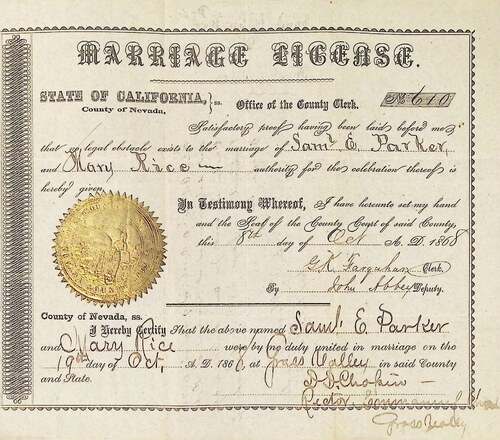 MARRIAGE LICENSE.
STATE OF CALIFORNIA, } ss. Office of the County Clerk. No 610
County of Nevada,
Satisfactory proof having been laid before me
that no legal obstacle exists to the marriage of Saml E. Parker,
and Mary Rice authority for the celebration thereof is
hereby given.
In Testimony Whereof, I have hereunto set my hand
and the Seal of the County Court of said County,
this 8th day of Oct A. D. 1868
G.K. Farquhar Clerk,
By John Abbey Deputy.
County of Nevada, ss.
I Hereby Certify That the above named Saml E. Parker
and Mary Rice were by me duly united in marriage on the
19th day of Oct, A. D. 186 at Grass Valley in said County
and State.
Rector Emmanuel
Grass Valley